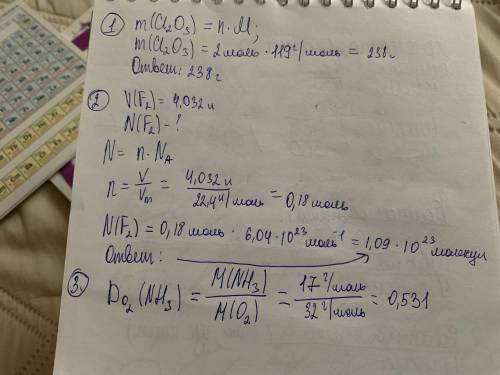 ① m(Cl₂O₃) = n·M;
m(Cl₂O₃) = 2 моль · 119 г/моль = 238 г
Ответ: 238 г
② V(F₂) = 4,032 л
N(F₂) - ?
N = n · N_A
n = V/Vm = 4,032 л / 22,4 л/моль = 0,18 моль
N(F₂) = 0,18 моль · 6,04 · 10²³ моль⁻¹ = 1,09 · 10²³ молекул
Ответ:
③ D_O₂ (NH₃) = M(NH₃)/M(O₂) = 17 г/моль / 32 г/моль = 0,531